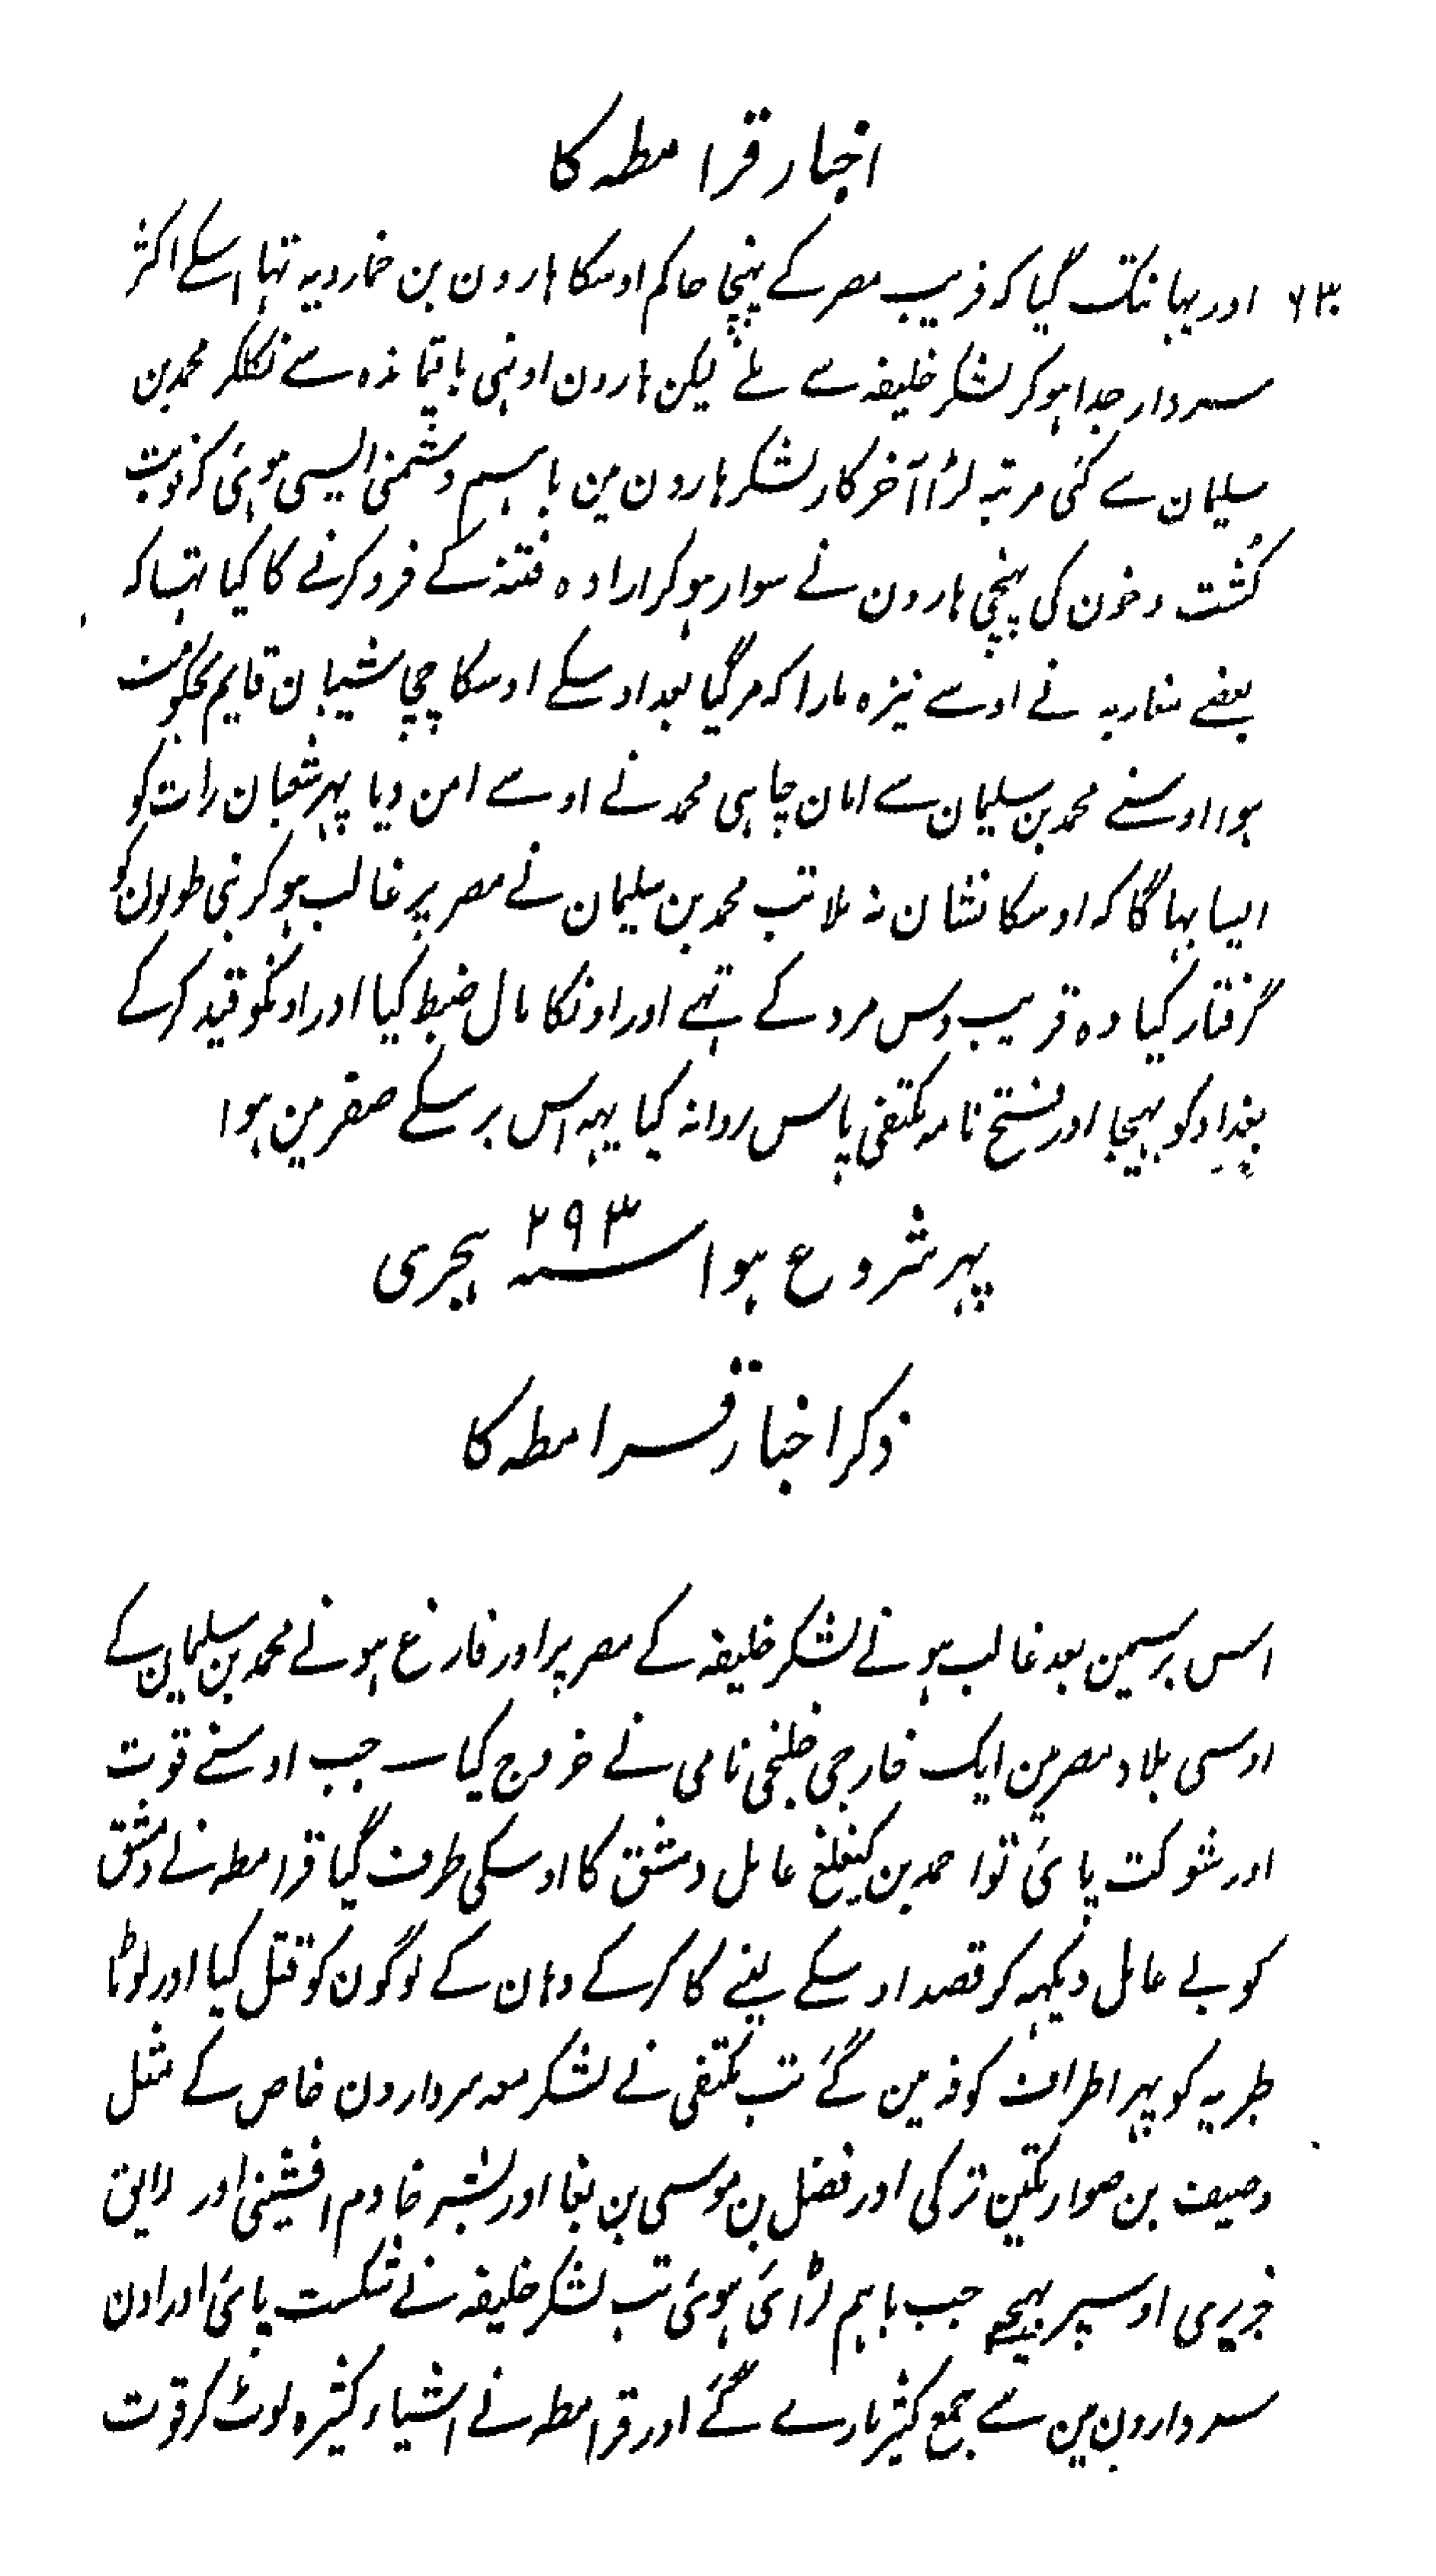 اخبار قرامطه کا
۶۳ اور یہانتک گیا کہ قریب مصر کے پہنچا حاکم اوسکا ہارون بن خمارویہ تہا اسکے اکثر
سردار جدا ہوکر لشکر خلیفہ سے ملے لیکن ہارون اونہی باقیماندہ سے نکلکر محمد بن
سلیمان سے کئی مرتبہ لڑا آخرکار لشکر ہارون مین باہم دشمنی ایسی ہوئی کہ نوبت
کُشت و خون کی پہنچی ہارون نے سوار ہوکر ارادہ فتنہ کے فرو کرنے کا کیا تہا کہ
بعضے مغاربہ نے اوسے نیزہ مارا کہ مرگیا بعد اوسکے اوسکا چچا شیبان قایم بحکومت
ہوا اوسنے محمد بن سلیمان سے امان چاہی محمد نے اوسے امن دیا پہر شعبان رات کو
ایسا بہاگا کہ اوسکا نشان نہ ملا تب محمد بن سلیمان نے مصر پر غالب ہوکر بنی طولون کو
گرفتار کیا وہ قریب دس مرد کے تہے اور اونکا مال ضبط کیا اور اونکو قید کرکے
بغداد کو بہیجا اور فتح نامہ مکتفی پاس روانہ کیا یہہ اس برسکے صفر مین ہوا
پہر شروع ہوا سنہ ۲۹۳ ہجری
ذکر اخبار قرامطہ کا
اس برسمین بعد غالب ہونے لشکر خلیفہ کے مصر پر اور فارغ ہونے محمد بن سلیمان کے
اوسی بلاد مصر مین ایک خارجی خلنجی نامی نے خروج کیا جب اوسنے قوت
اور شوکت پائی تو احمد بن کیغلغ عامل دمشق کا اوسکی طرف گیا قرامطہ نے دمشق
کو بے عامل دیکہہ کر قصد اوسکے لینے کا کرکے وہان کے لوگون کو قتل کیا اور لوٹا
طبریہ کو پہر اطراف کوفہ مین گئے تب مکتفی نے لشکر معہ سردارون خاص کے مثل
وصیف بن صوارتکین ترکی اور فضل بن موسی بن بغا اور بشیر خادم افشینی اور رایق
خزری اوسپر بہیجے جب باہم لڑائی ہوئی تب لشکر خلیفہ نے شکست پائی اور اون
سردارون مین سے جمع کثیر مارے گئے اور قرامطہ نے اشیاء کثیرہ لوٹ کر قوت